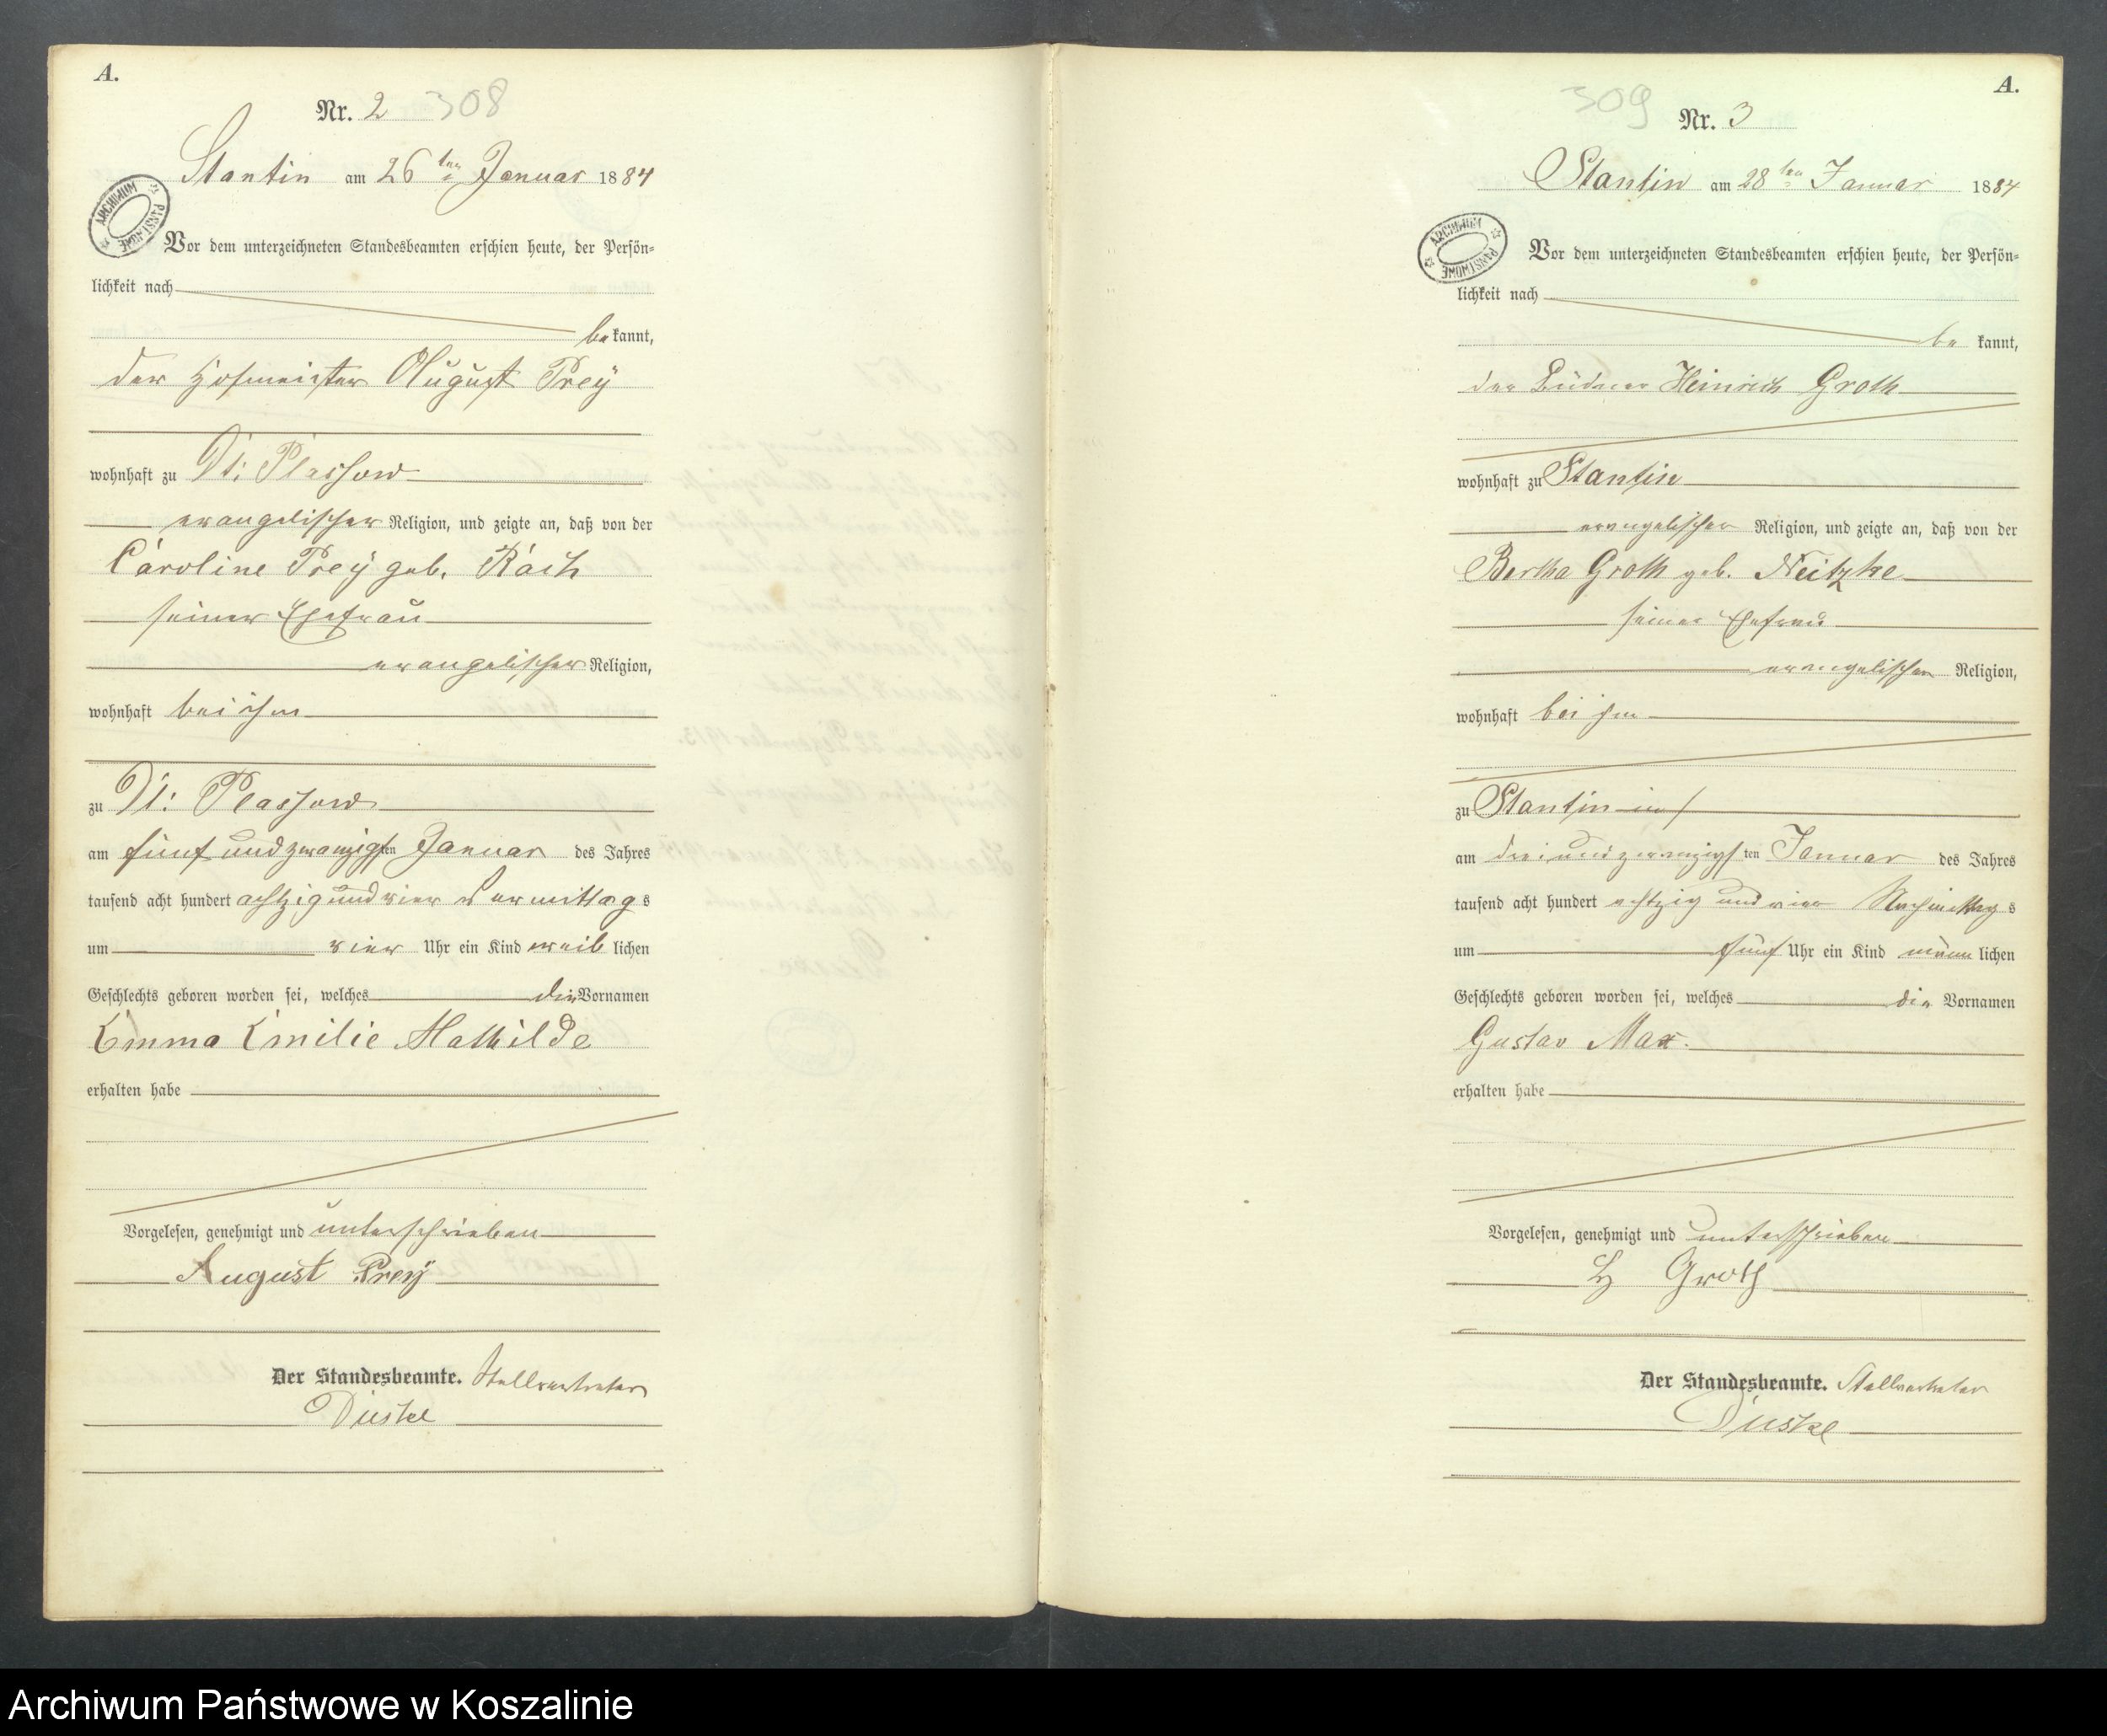 A.
Nr. 2 308
Stantin am 26ten Januar 1884
ARCHIWUM PAŃSTWOWE
Vor dem unterzeichneten Standesbeamten erschien heute, der Persön-
lichkeit nach
bekannt,
der Hofmeister August Prey
wohnhaft zu Dt: Plassow
evangelischer Religion, und zeigte an, daß von der
Caroline Prey geb. Rach
seiner Ehefrau
evangelischer Religion,
wohnhaft bei ihm
zu Dt: Plassow
am fünf und zwanzigsten Januar des Jahres
tausend acht hundert achtzig und vier Vormittags
um vier Uhr ein Kind weiblichen
Geschlechts geboren worden sei, welches die Vornamen
Emma Emilie Mathilde
erhalten habe
Vorgelesen, genehmigt und unterschrieben
August Prey
Der Standesbeamte. Stellvertreter
A.
309 Nr. 3
Stantin am 28ten Januar 1884
ARCHIWUM PAŃSTWOWE
Vor dem unterzeichneten Standesbeamten erschien heute, der Persön-
lichkeit nach
be kannt,
der Büdner Heinrich Groth
wohnhaft zu Stantin
evangelischer Religion, und zeigte an, daß von der
Bertha Groth geb. Neitzke
seiner Ehefrau
evangelischer Religion,
wohnhaft bei ihm
zu Stantin
am drei und zwanzigsten Januar des Jahres
tausend acht hundert achtzig und vier Nachmittags
um fünf Uhr ein Kind männlichen
Geschlechts geboren worden sei, welches die Vornamen
Gustav Max.
erhalten habe
Vorgelesen, genehmigt und unterschrieben
H Groth
Der Standesbeamte. Stellvertreter
Archiwum Państwowe w Koszalinie